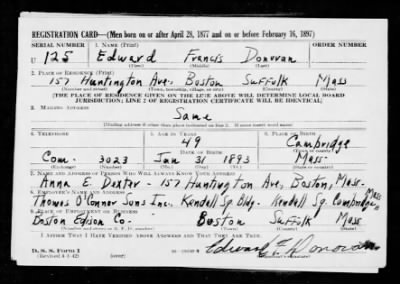 REGISTRATION CARD—(Men born on or after April 28, 1877 and on or before February 16, 1897)
SERIAL NUMBER 1. NAME (Print) ORDER NUMBER
U 125 Edward Francis Donovan
(First) (Middle) (Last)
2. PLACE OF RESIDENCE (Print)
157 Huntington Ave. Boston Suffolk Mass
(Number and street) (Town, township, village, or city) (County) (State)
[THE PLACE OF RESIDENCE GIVEN ON THE LINE ABOVE WILL DETERMINE LOCAL BOARD
JURISDICTION; LINE 2 OF REGISTRATION CERTIFICATE WILL BE IDENTICAL]
3. MAILING ADDRESS
Same
[Mailing address if other than place indicated on line 2. If same insert word same]
4. TELEPHONE 5. AGE IN YEARS 6. PLACE OF BIRTH
49 Cambridge
DATE OF BIRTH (Town or county)
Com. 3023 Jan 31 1893 Mass.
(Exchange) (Number) (Mo.) (Day) (Yr.) (State or country)
7. NAME AND ADDRESS OF PERSON WHO WILL ALWAYS KNOW YOUR ADDRESS
Anna E. Dexter - 157 Huntington Ave, Boston, Mass.
8. EMPLOYER'S NAME AND ADDRESS
Thomas O'Connor Sons Inc., Kendall Sq. Bldg. Kendall Sq. Cambridge Mass
9. PLACE OF EMPLOYMENT OR BUSINESS
Boston Edison Co. Boston Suffolk Mass
(Number and street or R. F. D. number) (Town) (County) (State)
I AFFIRM THAT I HAVE VERIFIED ABOVE ANSWERS AND THAT THEY ARE TRUE.
D. S. S. Form 1
(Revised 4-1-42) (over) Edward F. Donovan